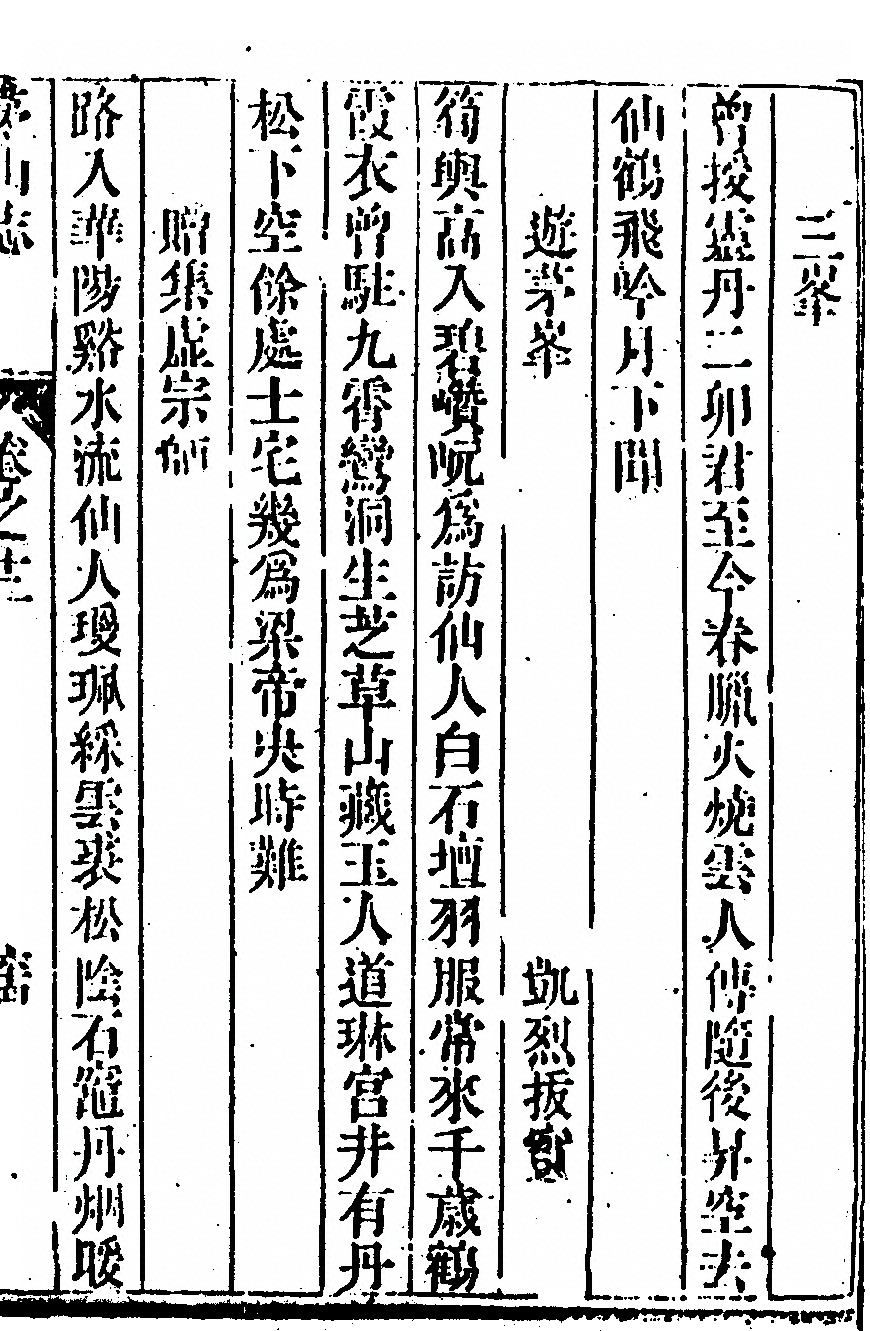 三峯
曾授靈丹二卯君至今春臘火燒雲人傳隨後昇空去
仙鶴飛吟月下聞
遊茅峯　凱烈拔
筍輿高入碧巑岏爲訪仙人白石壇羽服常來千歲鶴
霞衣曾駐九霄鸞洞生芝草山藏玉人道琳宮井有丹
松下空餘處士宅幾爲梁帝決時難
贈集虛宗師
路入華陽谿水流仙人瓊珮綵雲裘松陰石竈丹烟暖
山志　卷之